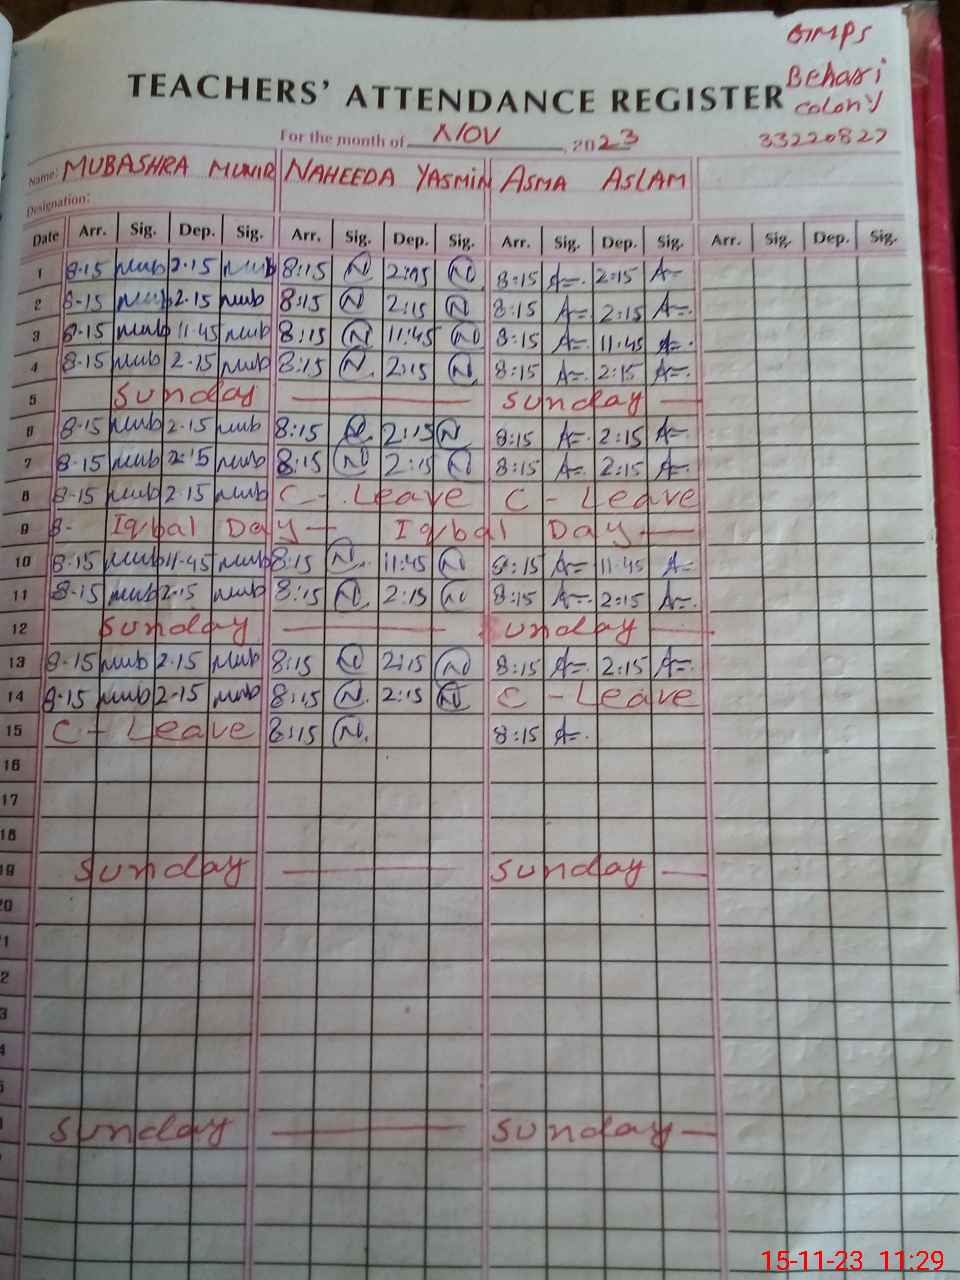 GMPS
Behari
colony
33220827
TEACHERS' ATTENDANCE REGISTER
For the month of NOV, 2023
Name: MUBASHRA MUNIR NAHEEDA YASMIN ASMA ASLAM
Designation:
Date Arr. Sig. Dep. Sig. Arr. Sig. Dep. Sig. Arr. Sig. Dep. Sig. Arr. Sig. Dep. Sig.
1 8-15 Mub 2-15 Mub 8:15 N 2:15 N 8:15 A=. 2:15 A=
2 8-15 Mub 2-15 Mub 8:15 N 2:15 N 8:15 A=. 2:15 A=.
3 8-15 Mub 11-45 Mub 8:15 N 11:45 N 8:15 A=. 11:45 A=.
4 8-15 Mub 2-15 Mub 8:15 N. 2:15 N. 8:15 A=. 2:15 A=.
5 Sunday — Sunday —
6 8-15 Mub 2-15 Mub 8:15 N. 2:15 N 8:15 A=. 2:15 A=.
7 8-15 Mub 2-15 Mub 8:15 N 2:15 N 8:15 A=. 2:15 A=.
8 8-15 Mub 2-15 Mub C - Leave C - Leave
9 8- Iqbal Day — Iqbal Day —
10 8-15 Mub 11-45 Mub 8:15 N. 11:45 N 8:15 A=. 11:45 A=
11 8-15 Mub 2-15 Mub 8:15 N. 2:15 N 8:15 A=. 2:15 A=.
12 Sunday — Sunday —
13 8-15 Mub 2-15 Mub 8:15 N 2:15 N 8:15 A=. 2:15 A=.
14 8-15 Mub 2-15 Mub 8:15 N. 2:15 N C - Leave
15 C - Leave 8:15 N. 8:15 A=.
16
17
18
19 Sunday — Sunday —
20
1
2
3
4
Sunday — Sunday —
15-11-23 11:29